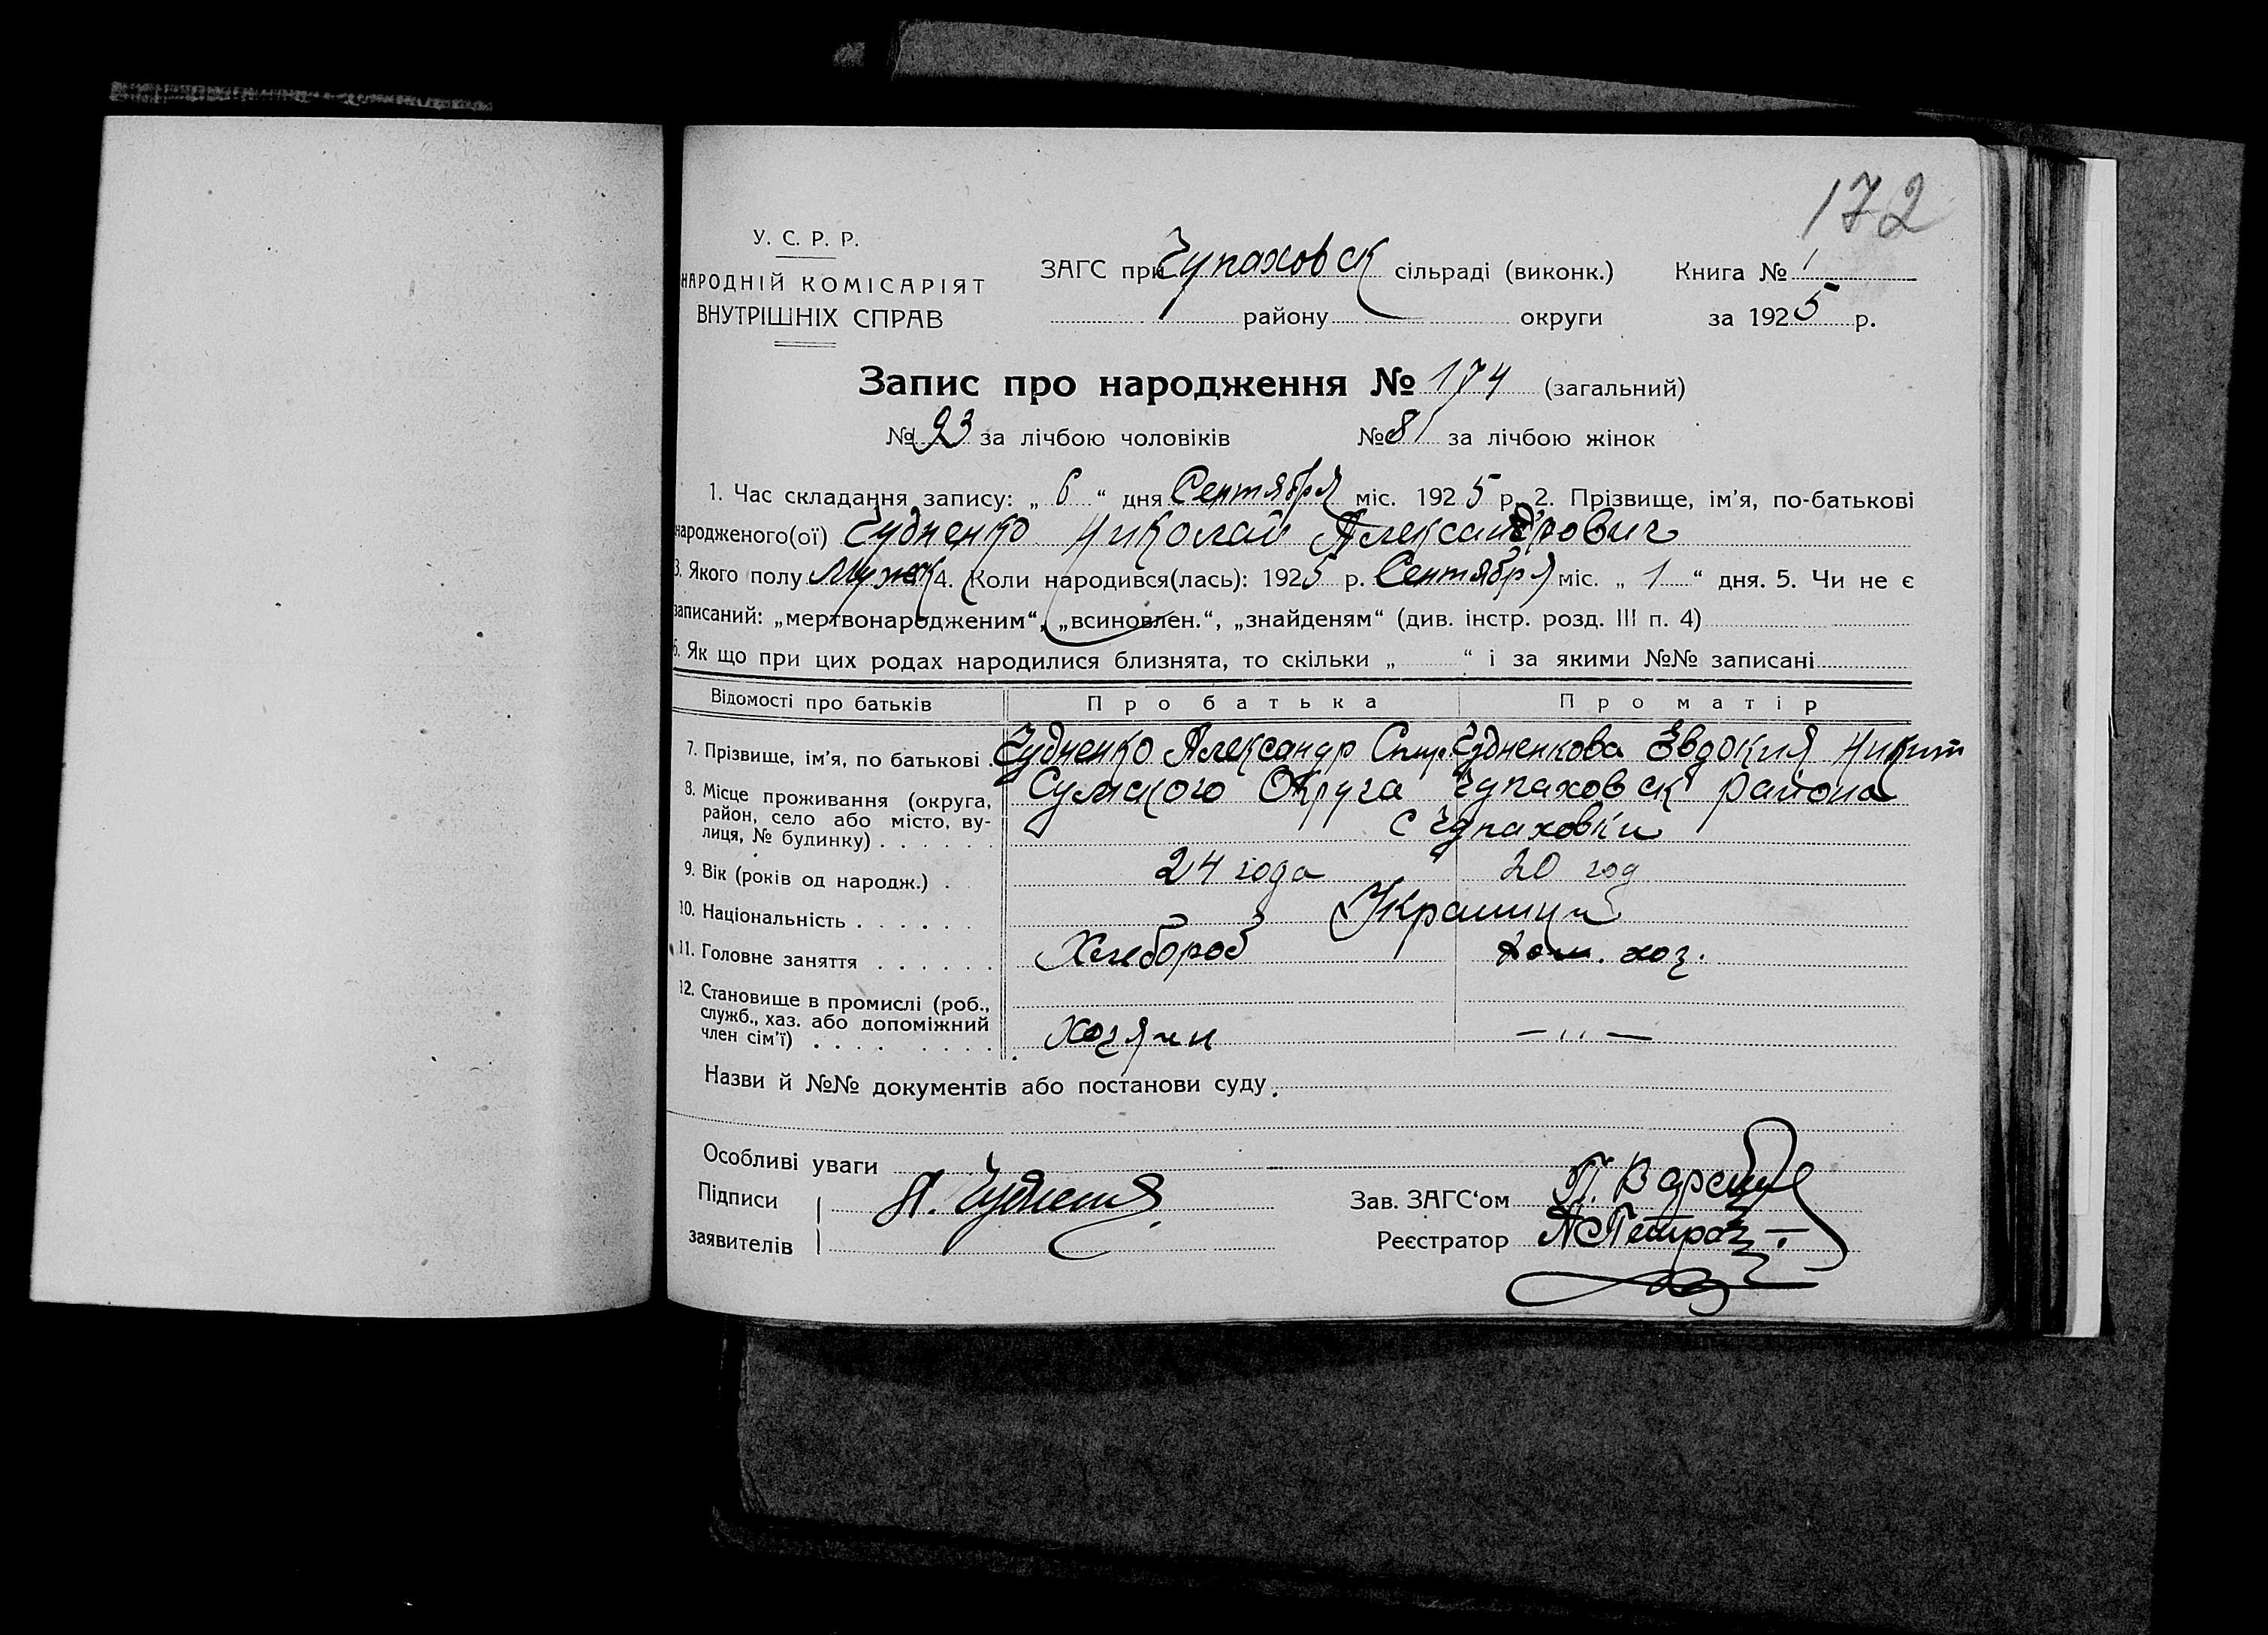 172
У. С. Р. Р.
НАРОДНІЙ КОМІСАРІЯТ
ВНУТРІШНІХ СПРАВ
ЗАГС при Чупаховск сільраді (виконк.)
району округи
Книга № 1
за 1925 р.
Запис про народження № 174 (загальний)
№ 93 за лічбою чоловіків № 81 за лічбою жінок
1. Час складання запису: „ 6 “ дня Сентября міс. 1925 р. 2. Прізвище, ім’я, по-батькові
народженого(ої) Чудненко Николай Александрович
3. Якого полу Мужск 4. Коли народився(лась): 1925 р. Сентября міс. „ 1 “ дня. 5. Чи не є
записаний: „мертвонародженим“, „всиновлен.“, „знайденям“ (див. інстр. розд. III п. 4)
6. Як що при цих родах народилися близнята, то скільки „ “ і за якими №№ записані
Відомості про батьків Про батька Про матір
7. Прізвище, ім’я, по батькові . Чудненко Александр Чудненкова Евдокия Никит
8. Місце проживання (округа, район, село або місто, ву-
лиця, № будинку) . . . . . .
Сумского Округа Чупаховск района
с Чупаховки
9. Вік (років од народж.) . 24 года 20 год
10. Національність . . . . . . Украинцы
11. Головне заняття . . . . . . Хлебороб дом. хоз.
12. Становище в промислі (роб.,
служб., хаз. або допоміжний
член сім’ї) . . . . . . . . Хозяин — „ —
Назви й №№ документів або постанови суду.
Особливі уваги
Підписи
заявителів
А. Чудненко
Зав. ЗАГС‘ом
Реєстратор